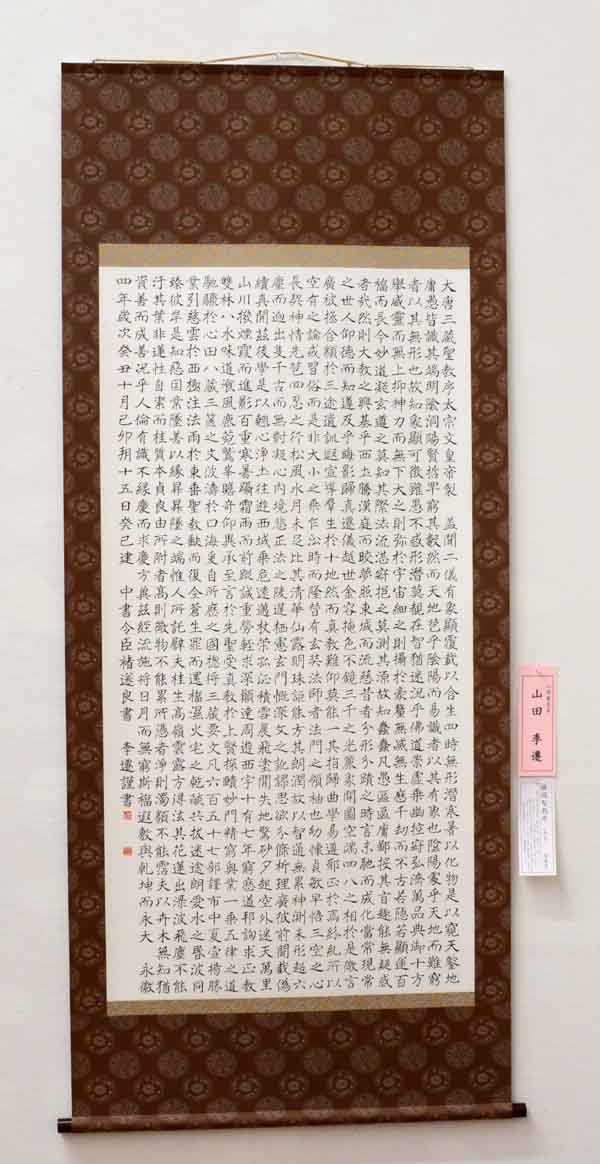 大唐三藏聖教序太宗文皇帝製　蓋聞二儀有象顯覆載以含生四時無形潜寒暑以化物是以窺天鑒地
庸愚皆識其端明陰洞陽賢哲罕窮其數然而天地苞乎陰陽而易識者以其有象也陰陽處乎天地而難窮
者以其無形也故知象顯可徵雖愚不惑形潜莫覩在智猶迷況乎佛道崇虛乘幽控寂弘濟萬品典御十方
舉威靈而無上抑神力而無下大之則弥於宇宙細之則攝於豪釐無滅無生歷千劫而不古若隱若顯運百
福而長今妙道凝玄遵之莫知其際法流湛寂挹之莫測其源故知蠢蠢凡愚區區庸鄙投其旨趣能無疑惑
者哉然則大教之興基乎西土騰漢庭而皎夢照東域而流慈昔者分形分蹟之時言未馳而成化當常現常
之世人仰德而知遵及乎晦影歸真遷儀越世金容掩色不鏡三千之光麗象開圖空端四八之相於是微言
廣被拯含類於三途遺訓遐宣導群生於十地然而真教難仰莫能一其指歸曲學易遵邪正於焉紛糺所以
空有之論或習俗而是非大小之乘乍沿時而隆替有玄奘法師者法門之領袖也幼懷貞敏早悟三空之心
長契神情先苞四忍之行松風水月未足比其清華仙露明珠詎能方其朗潤故以智通無累神測未形超六
塵而迥出隻千古而無對凝心內境悲正法之陵遲栖慮玄門慨深文之訛謬思欲分條析理廣彼前聞截偽
續真開茲後學是以翹心淨土往遊西域乘危遠邁杖策孤征積雪晨飛塗閒失地驚砂夕起空外迷天萬里
山川撥煙霞而進影百重寒暑躡霜雨而前蹤誠重勞輕求深願達周遊西宇十有七年窮歷道邦詢求正教
雙林八水味道飡風鹿菀鷲峯瞻奇仰異承至言於先聖受真教於上賢探賾妙門精窮奥業一乘五律之道
馳驟於心田八藏三篋之文波濤於口海爰自所歷之國總將三藏要文凡六百五十七部譯布中夏宣揚勝
業引慈雲於西極注法雨於東垂聖教缺而復全蒼生罪而還福濕火宅之乾焰共拔迷途朗愛水之昏波同
臻彼岸是知惡因業墜善以緣昇昇墜之端惟人所託譬夫桂生高嶺雲露方得泫其花蓮出淥波飛塵不能
汙其葉非蓮性自潔而桂質本貞良由所附者高則微物不能累所憑者淨則濁類不能霑夫以卉木無知猶
資善而成善況乎人倫有識不緣慶而求慶方冀茲經流施將日月而無窮斯福遐敷與乾坤而永大　永徽
四年歲次癸丑十月己卯朔十五日癸巳建　中書令臣褚遂良書　李遷謹書
山田李遷